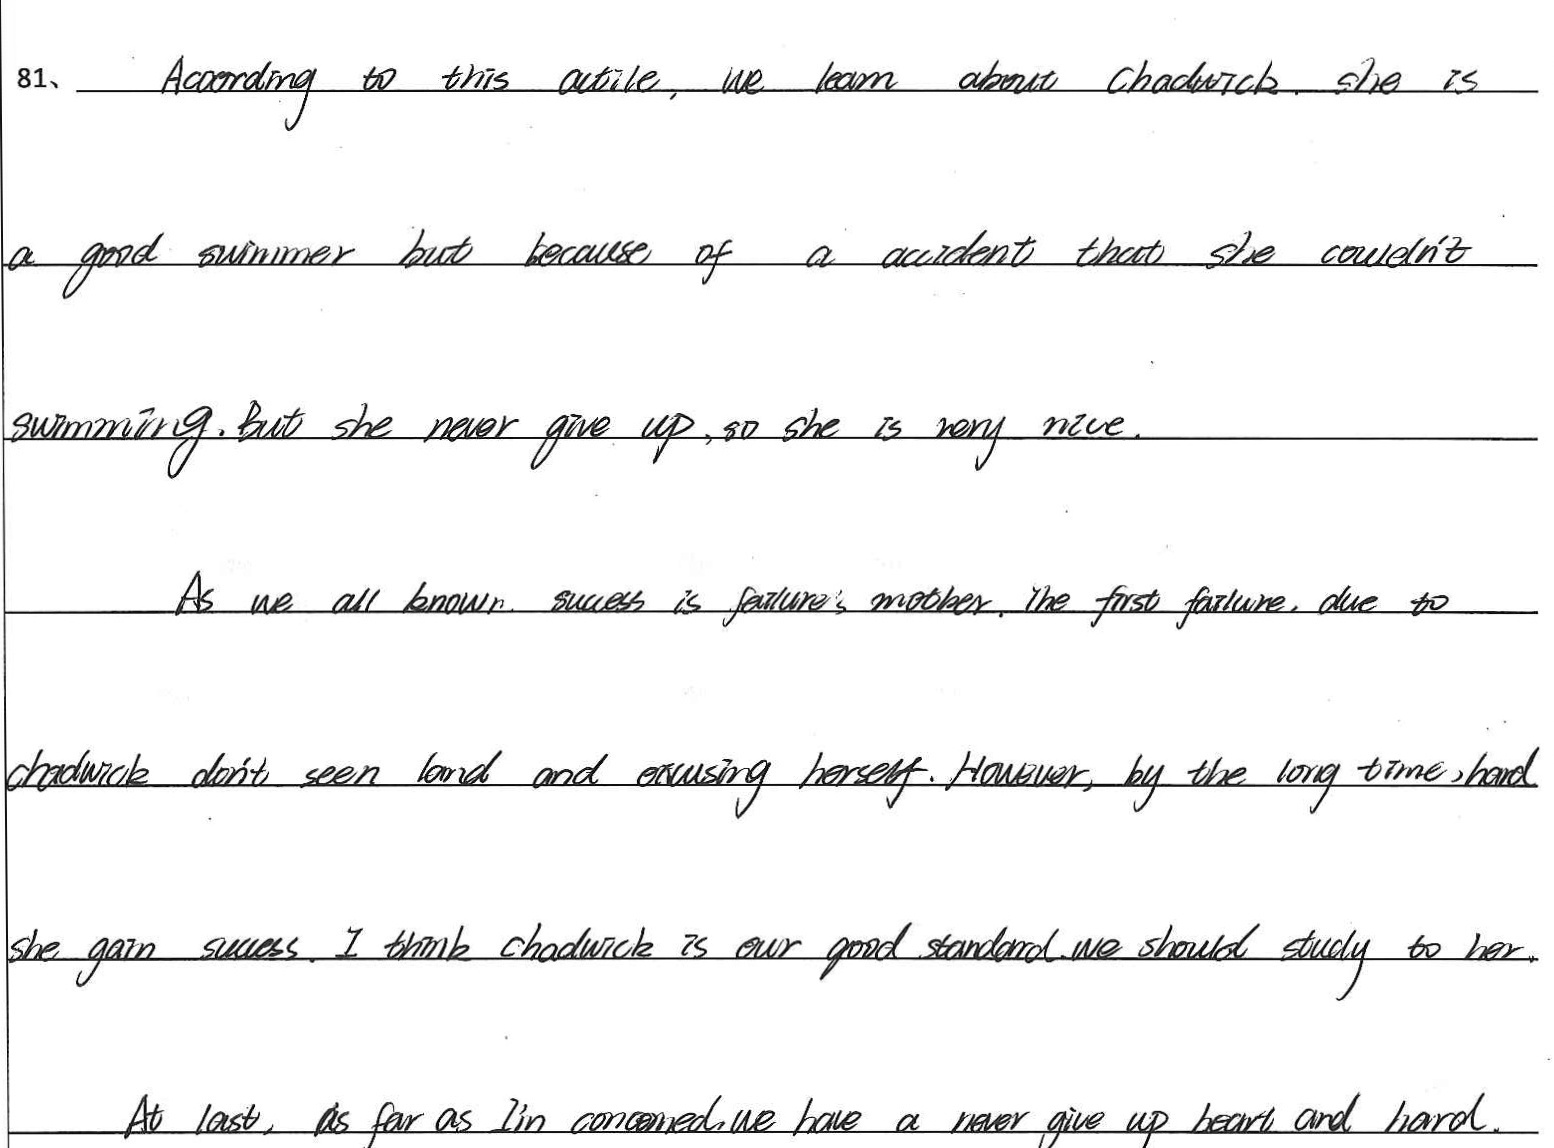 81、 According to this actile, we learn about Chadwick. she is
a good swimmer but because of a accident that she couldn't
swimming. But she never give up, so she is very nice.
As we all known. success is failure's mother. The first failure, due to
chadwick don't seen land and excusing herself. However, by the long time, hard
she gain success. I think chadwick is our good standard. we should study to her.
At last, as far as I'm concerned, we have a never give up heart and hard.